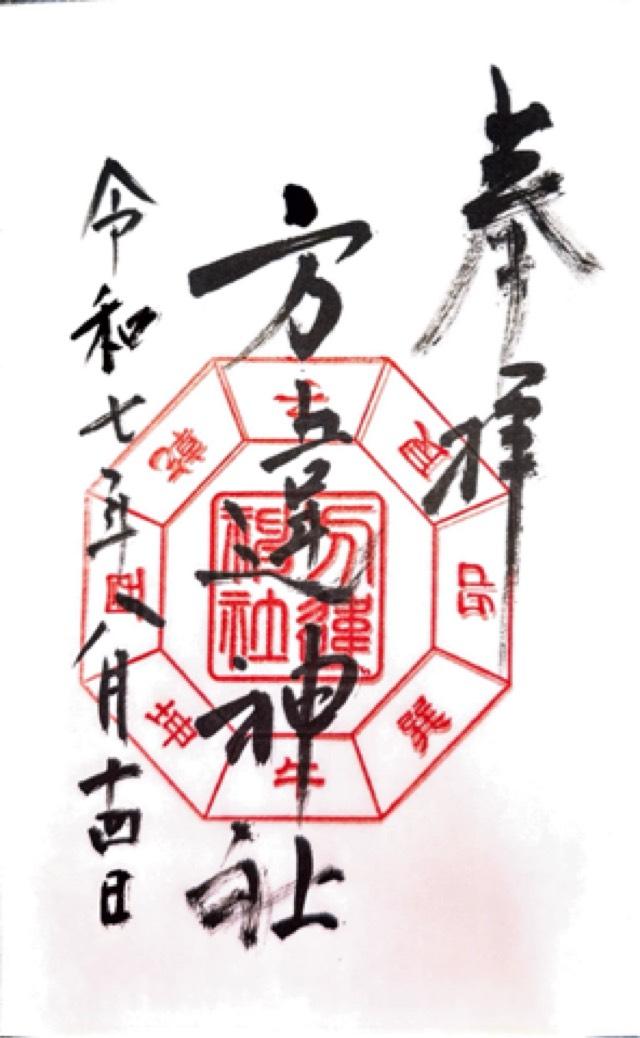 奉拝
方違神社
令和七年八月十四日
方違
神社
子
艮
卯
巽
午
坤
酉
乾